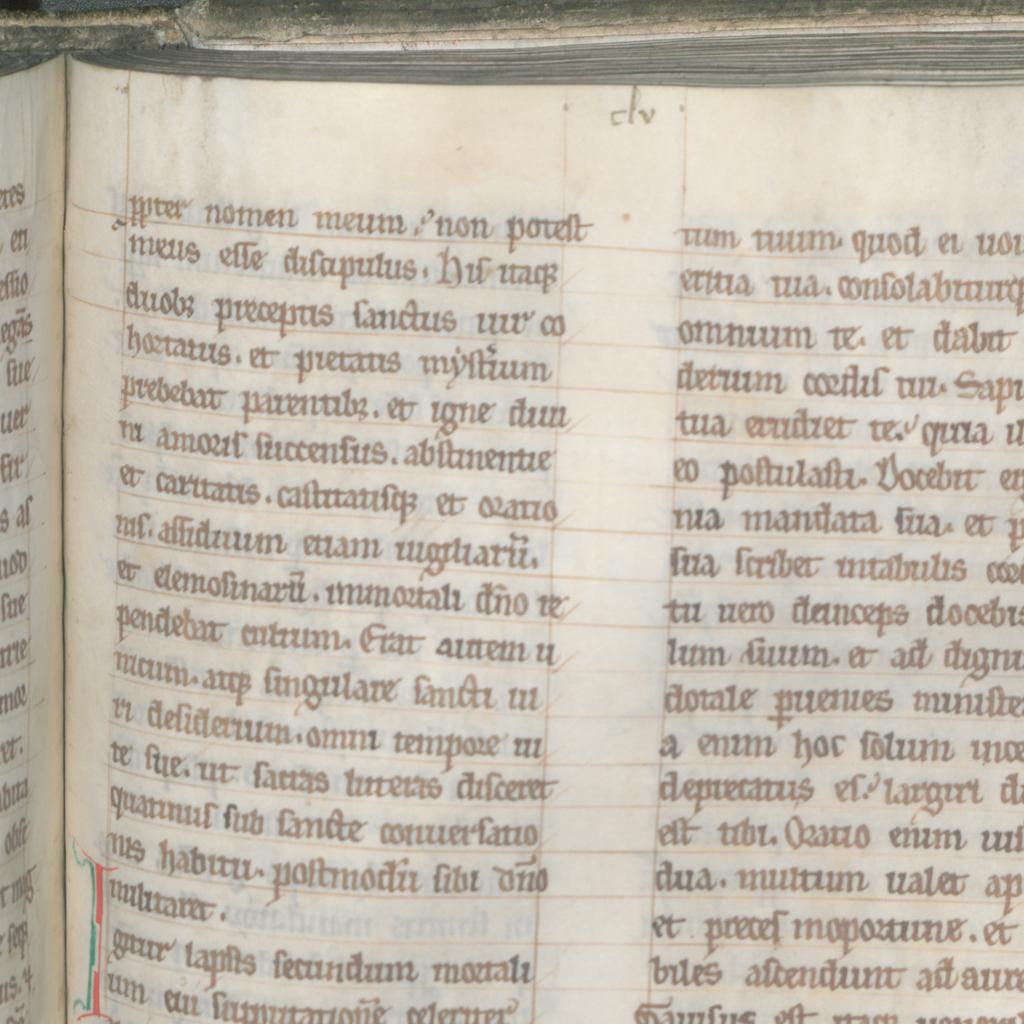 clv
ppter nomen meum, non potest
meus esse discipulus. His itaq;
duob; preceptis sanctus uir co
hortatus. et pietatis mysterium
prebebat parentib;. et igne diui
ni amoris succensus. abstinentie
et caritatis. castitatisq; et oratio
nis. assiduum etiam uigiliarū.
et elemosinarū. inmortali dño re
pendebat cultum. Erat autem u
nicum. atq; singulare sancti ui
ri desiderium. omni tempore ui
te sue. ut sacras litteras disceret
quatinus sub sancte conuersatio
nis habitu. postmodū sibi dño
militaret.
Igitur lapsis secundum mortali
um eui supputationē celeriter
tum tuum. quod ei uou
eritia tua. consolabiturq
omnium te. et dabit
derium cordis tui. Sapi
tua erudiet te, quia il
eo postulasti. Docebit en
nia mandata sua. et p
sua scribet intabulis cor
tu uero deinceps docebis
lum suum. et ad digni
dotale puenies ministe
a enim hoc solum ince
deprecatus es, largiri di
est tibi. Oratio enim uis
dua. multum ualet ap
et preces inoportune. et
biles ascendunt ad aure
Gauisus est itaq;